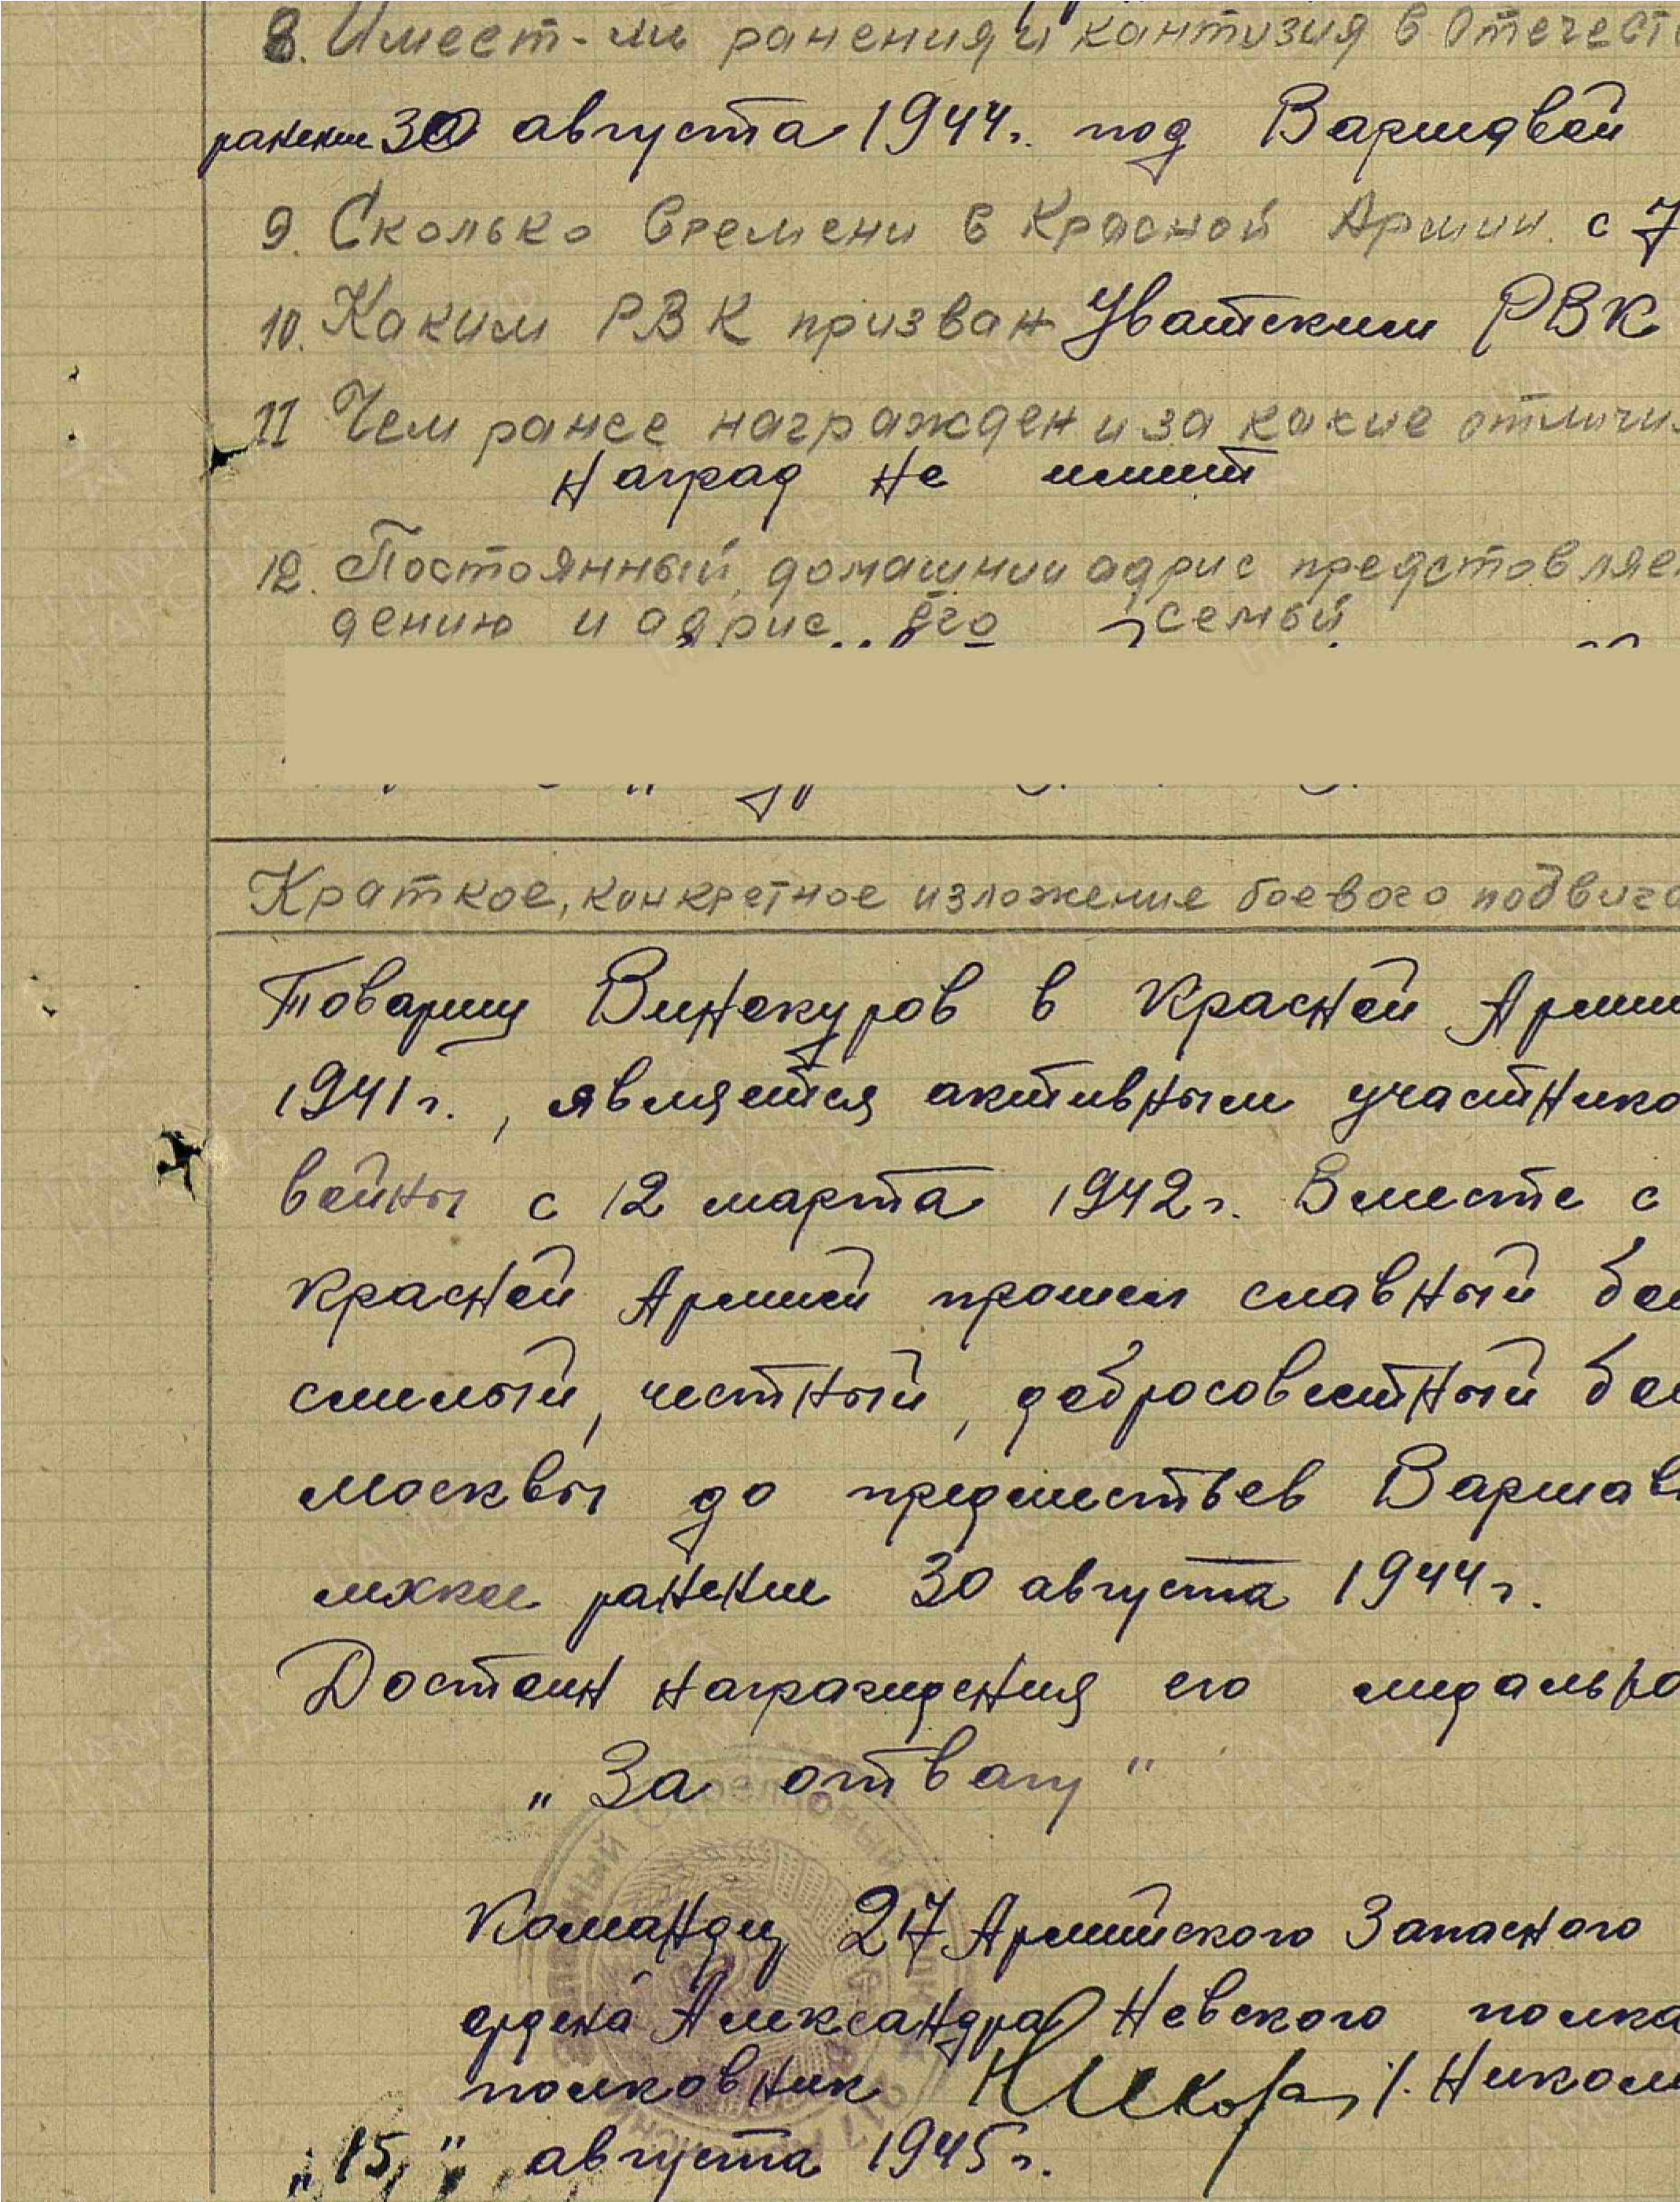 8. Имеет-ли ранения и кантузия в Отечест
ранение 30 августа 1944г. под Варшавой
9. Сколько времени в Красной Армии. с 7
10. Каким РВК призван Уватским РВК
11 Чем ранее награжден и за какие отличи
Наград не имеет
12. Постоянный, домашний адрис предстовляе
дению и адрис его семьи
Краткое, конкретное изложение боевого подвига
Товарищ Винокуров в Красной Арми
1941г., является активным участнико
войны с 12 марта 1942г. Вместе с
Красной Армией прошел славный бо
смелый, честный, добросовестный бо
Москвы до предместьев Варшав
легкое ранение 30 августа 1944г.
Достоин награждения его медалью
„За отвагу"
Командир 217 Армейского Запасного
ордена Александра Невского полка
полковник /. Никол
„15" августа 1945г.